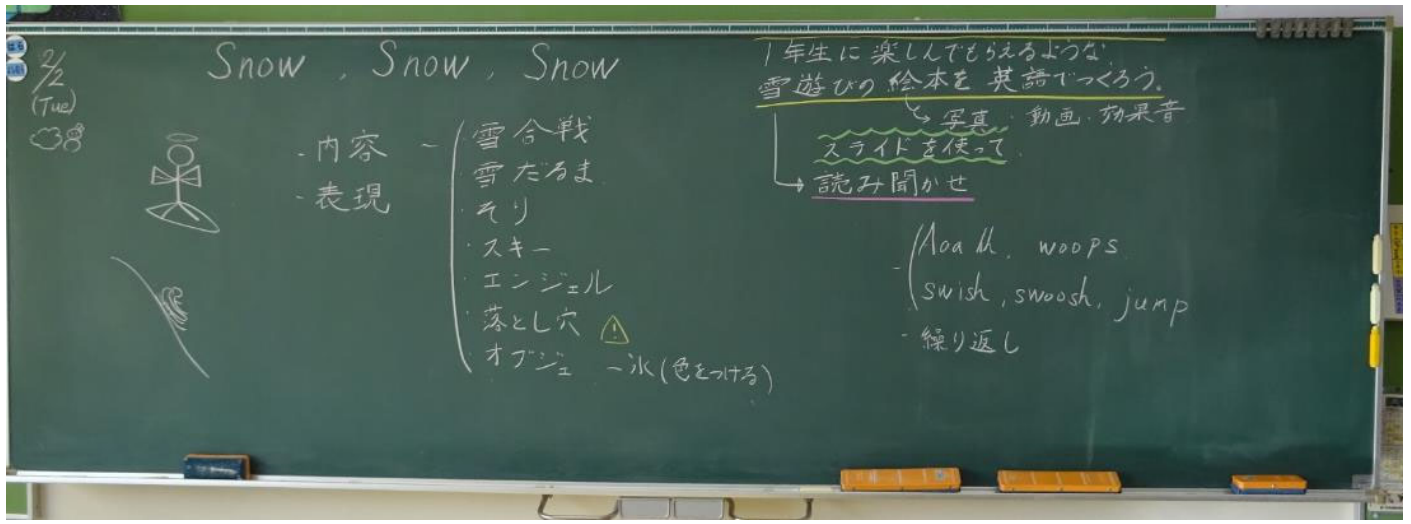 2/2
(Tue)
Snow, Snow, Snow
・内容
・表現
・雪合戦
・雪だるま
・そり
・スキー
・エンジェル
・落とし穴 ⚠
・オブジェ － 氷(色をつける)
1年生に楽しんでもらえるような
雪遊びの絵本を英語でつくろう。
→写真・動画・効果音
スライドを使って
→読み聞かせ
woops
swish, swoosh, jump
・繰り返し